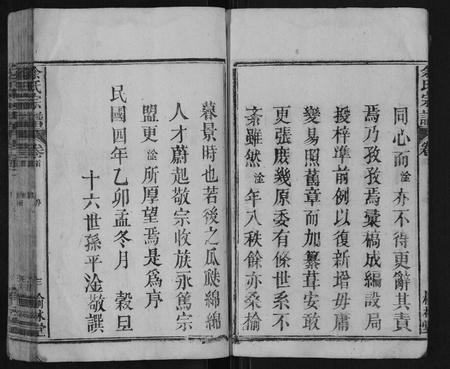 余氏宗譜
卷
同心而淦亦不得更辭其責
焉乃孜孜焉彙槁成編設局
授梓準前例以復新增毋庸
變易照舊章而加纂葺安敢
更張庶幾原委有條世系不
紊雖然淦年八秩餘亦桑榆
暮景時也若後之瓜瓞綿綿
人才蔚起敬宗收族永篤宗
盟更淦所厚望焉是為序
民國四年乙卯孟冬月 穀旦
十六世孫平淦敬譔
余氏宗譜
卷首
榆林堂